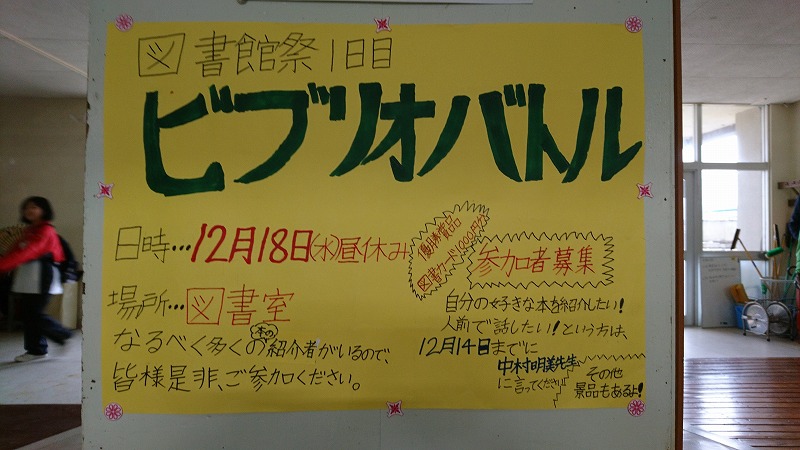 図書館祭1日目
ビブリオバトル
日時…12月18日(水)昼休み
場所…図書室
なるべく多くの本の紹介者がいるので、
皆様是非、ご参加ください。
優勝賞品
図書カード1000円分
参加者募集
自分の好きな本を紹介したい!
人前で話したい!という方は、
12月14日までに
中村明美先生
に言ってください!!
その他
景品もあるよ!